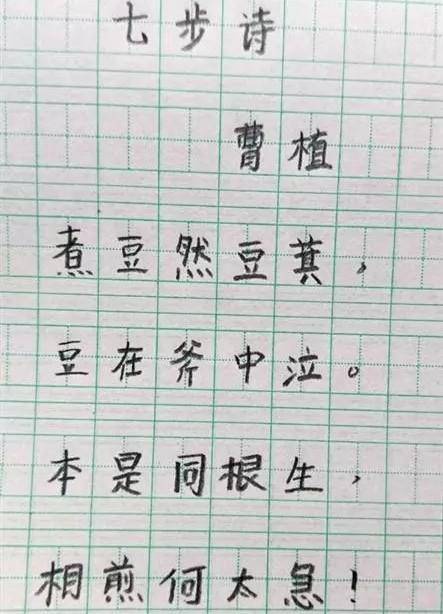 七步诗
曹植
煮豆然豆萁，
豆在斧中泣。
本是同根生，
相煎何太急！